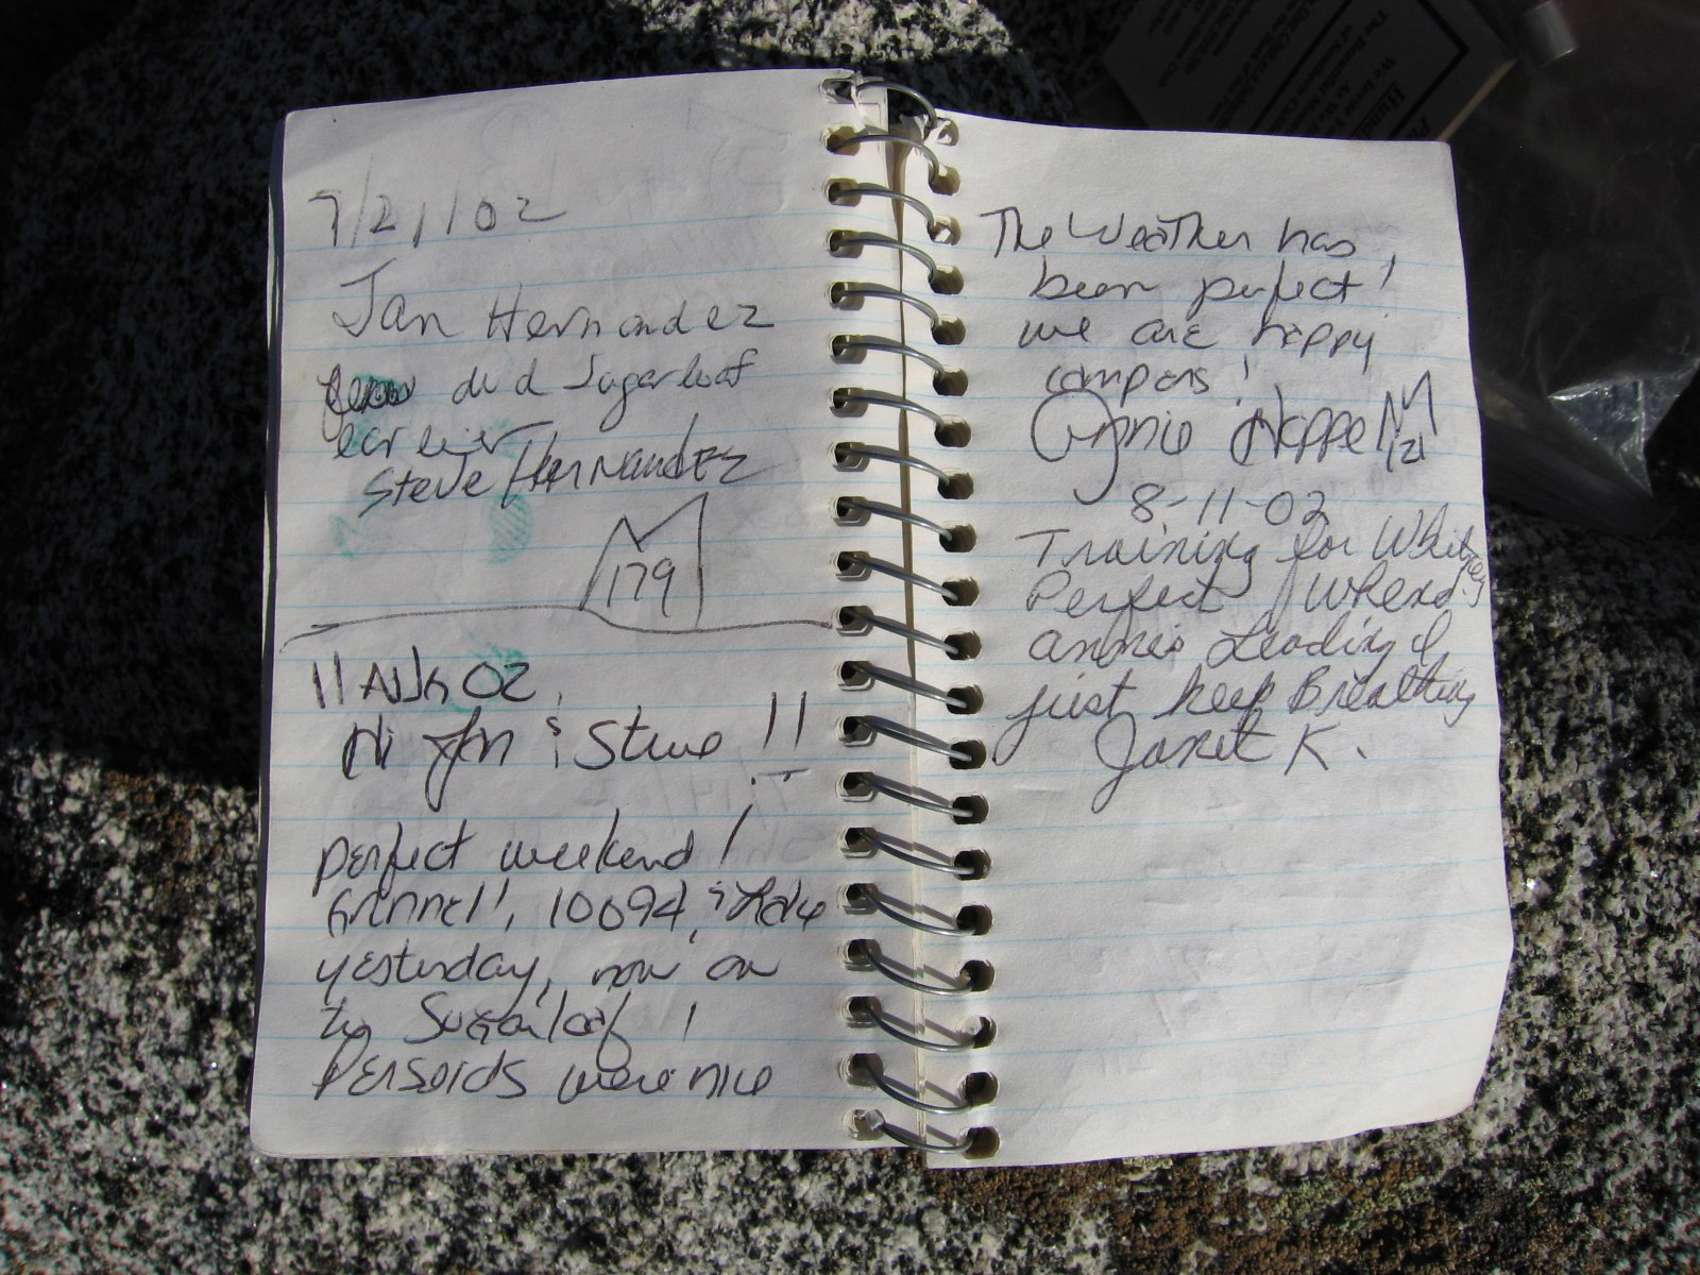 7/21/02
Jan Hernandez
did Sugarloaf
earlier
Steve Hernandez
179
11 AUG 02
Hi Jan & Steve !!
perfect weekend!
Grinnell, 10094, & Lake
yesterday, now on
to Sugarloaf!
Perseids were nice
The Weather has
been perfect!
we are happy
campers!
Annie Hoppe
121
8-11-02
Training for Whitney
Perfect Whend
annies Leading I
just keep Breathing
Janet K.